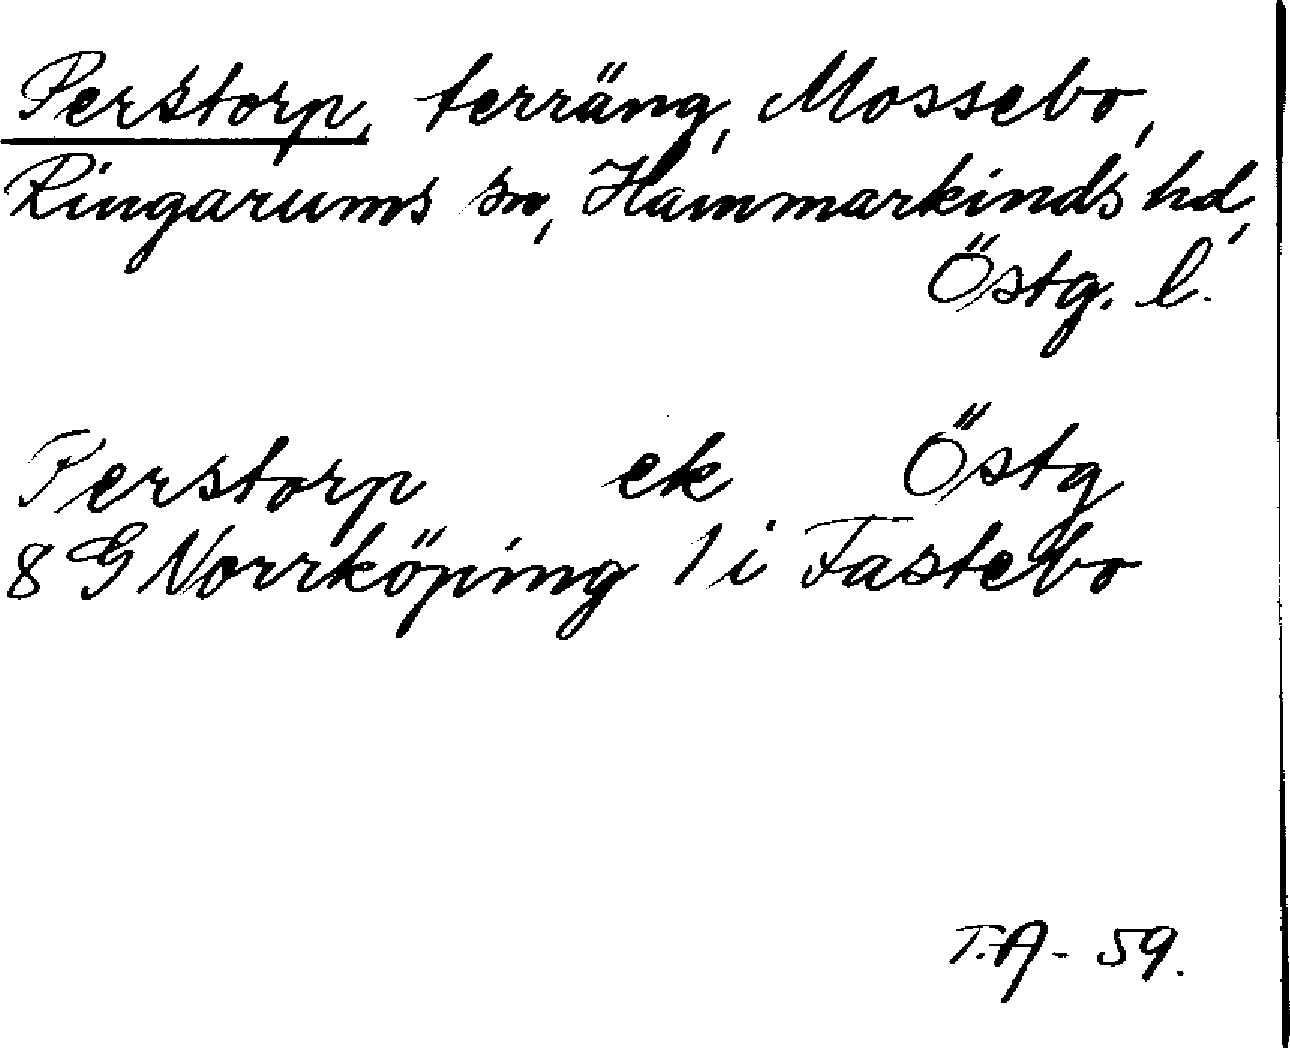 Perstorp, terräng, Mossebo,
Ringarums sn, Hammarkinds hd,
Östg. l.
Perstorp ek Östg
8 G Norrköping 1 i Fastebo
T.A - 59.